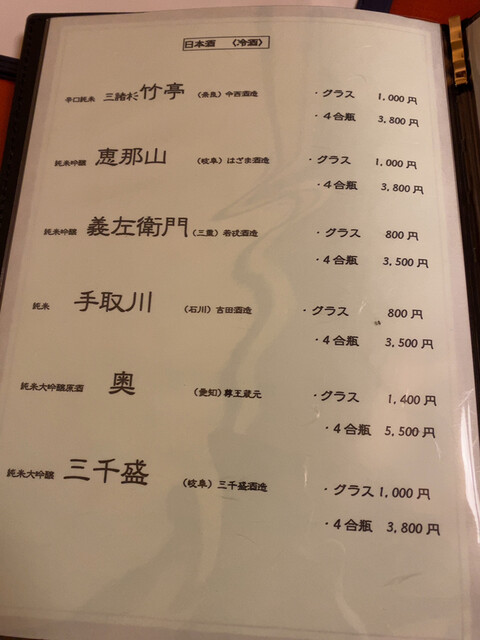 日本酒 《冷酒》
辛口純米 三諸杉 竹亭 (奈良) 今西酒造 ・グラス 1,000円
・4合瓶 3,800円
純米吟醸 恵那山 (岐阜) はざま酒造 ・グラス 1,000円
・4合瓶 3,800円
純米吟醸 義左衛門 (三重) 若戎酒造 ・グラス 800円
・4合瓶 3,500円
純米 手取川 (石川) 吉田酒造 ・グラス 800円
・4合瓶 3,500円
純米大吟醸原酒 奥 (愛知) 尊王蔵元 ・グラス 1,400円
・4合瓶 5,500円
純米大吟醸 三千盛 (岐阜) 三千盛酒造 ・グラス 1,000円
・4合瓶 3,800円